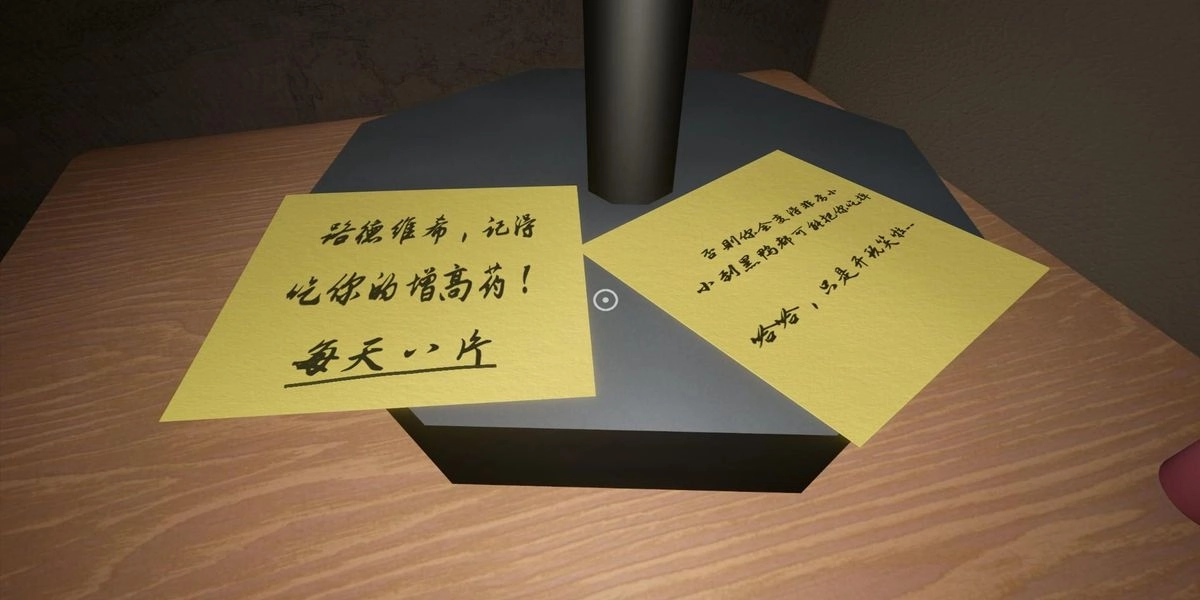 路德维希，记得
吃你的增高药！
每天八片
否则你会变得非常小
小到黑鸭都可能把你吃掉
哈哈，只是开玩笑啦...